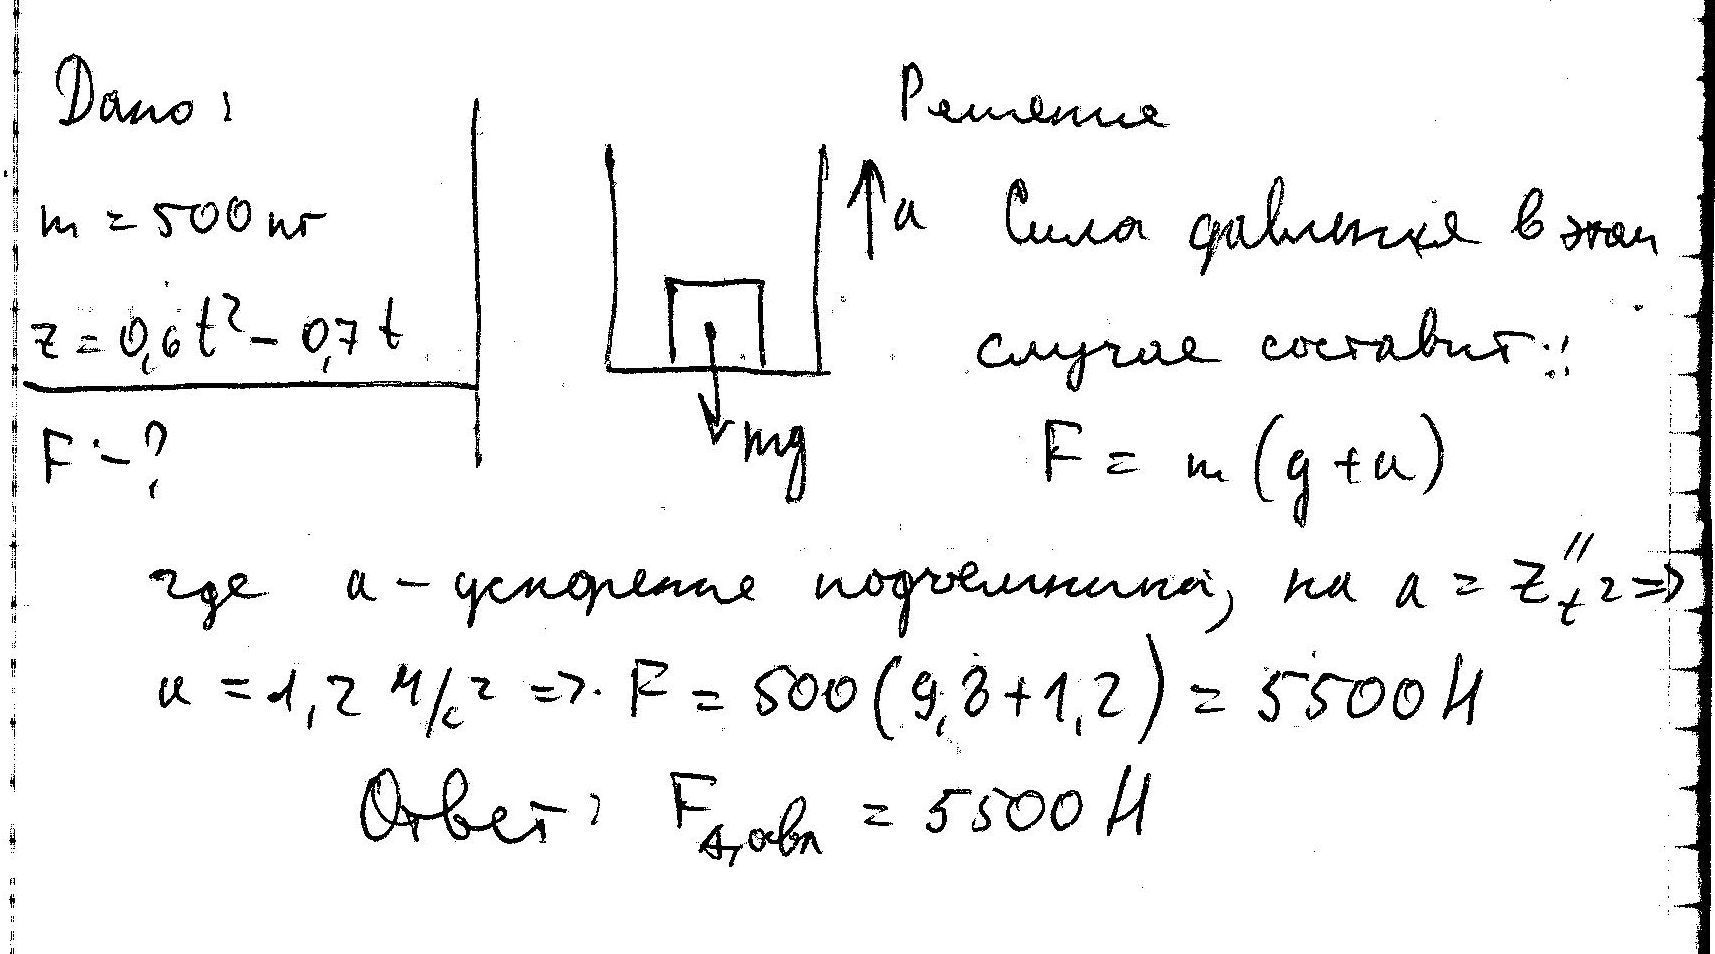 Дано:
Решение
m = 500 кг
a Сила давления в этом
z = 0,6t² - 0,7t
случае составит:
F - ?
mg
F = m(g+a)
где a - ускорение подъемника, на a = z''t² =>
a = 1,2 м/с² => F = 500(9,8+1,2) = 5500 Н
Ответ: Fдавл = 5500 Н